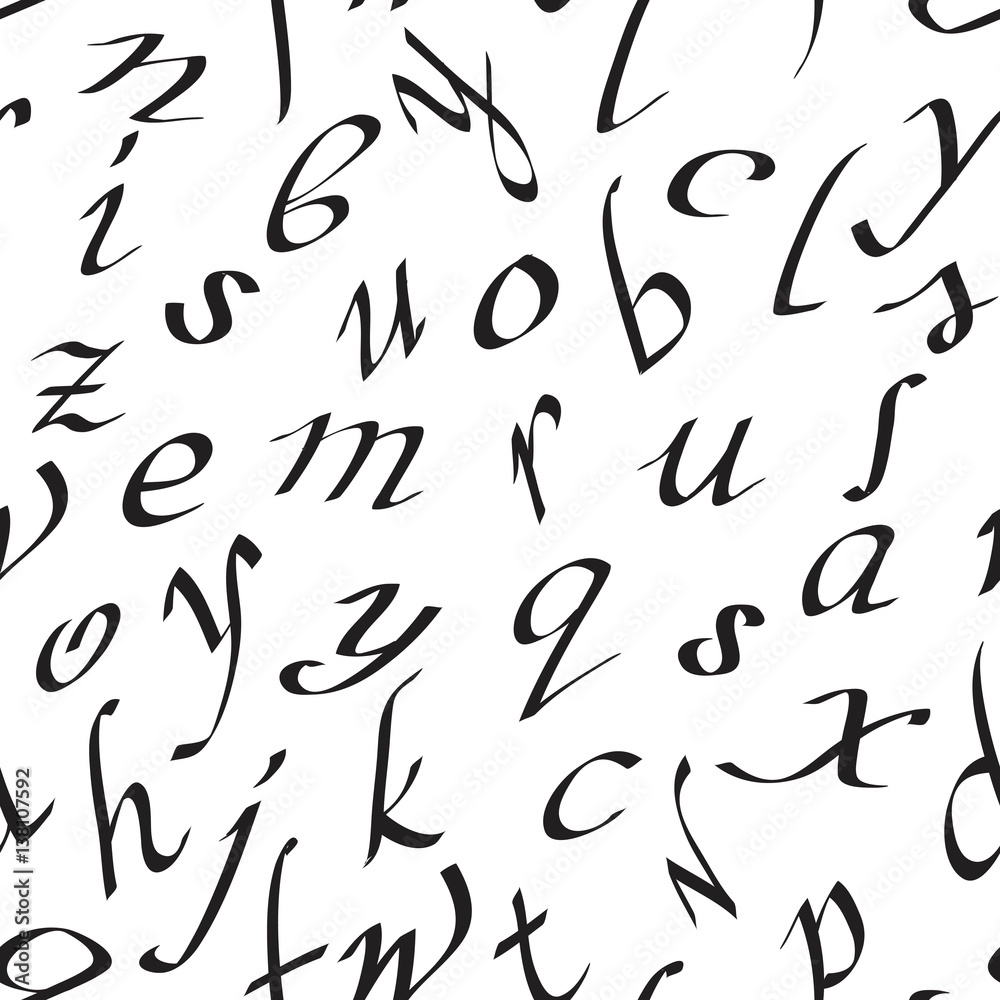 n y
i b c l y
s u o b s
z e m r u ſ
v y y q s a
o h j k c x d
f w t N p
Adobe Stock | 138107592